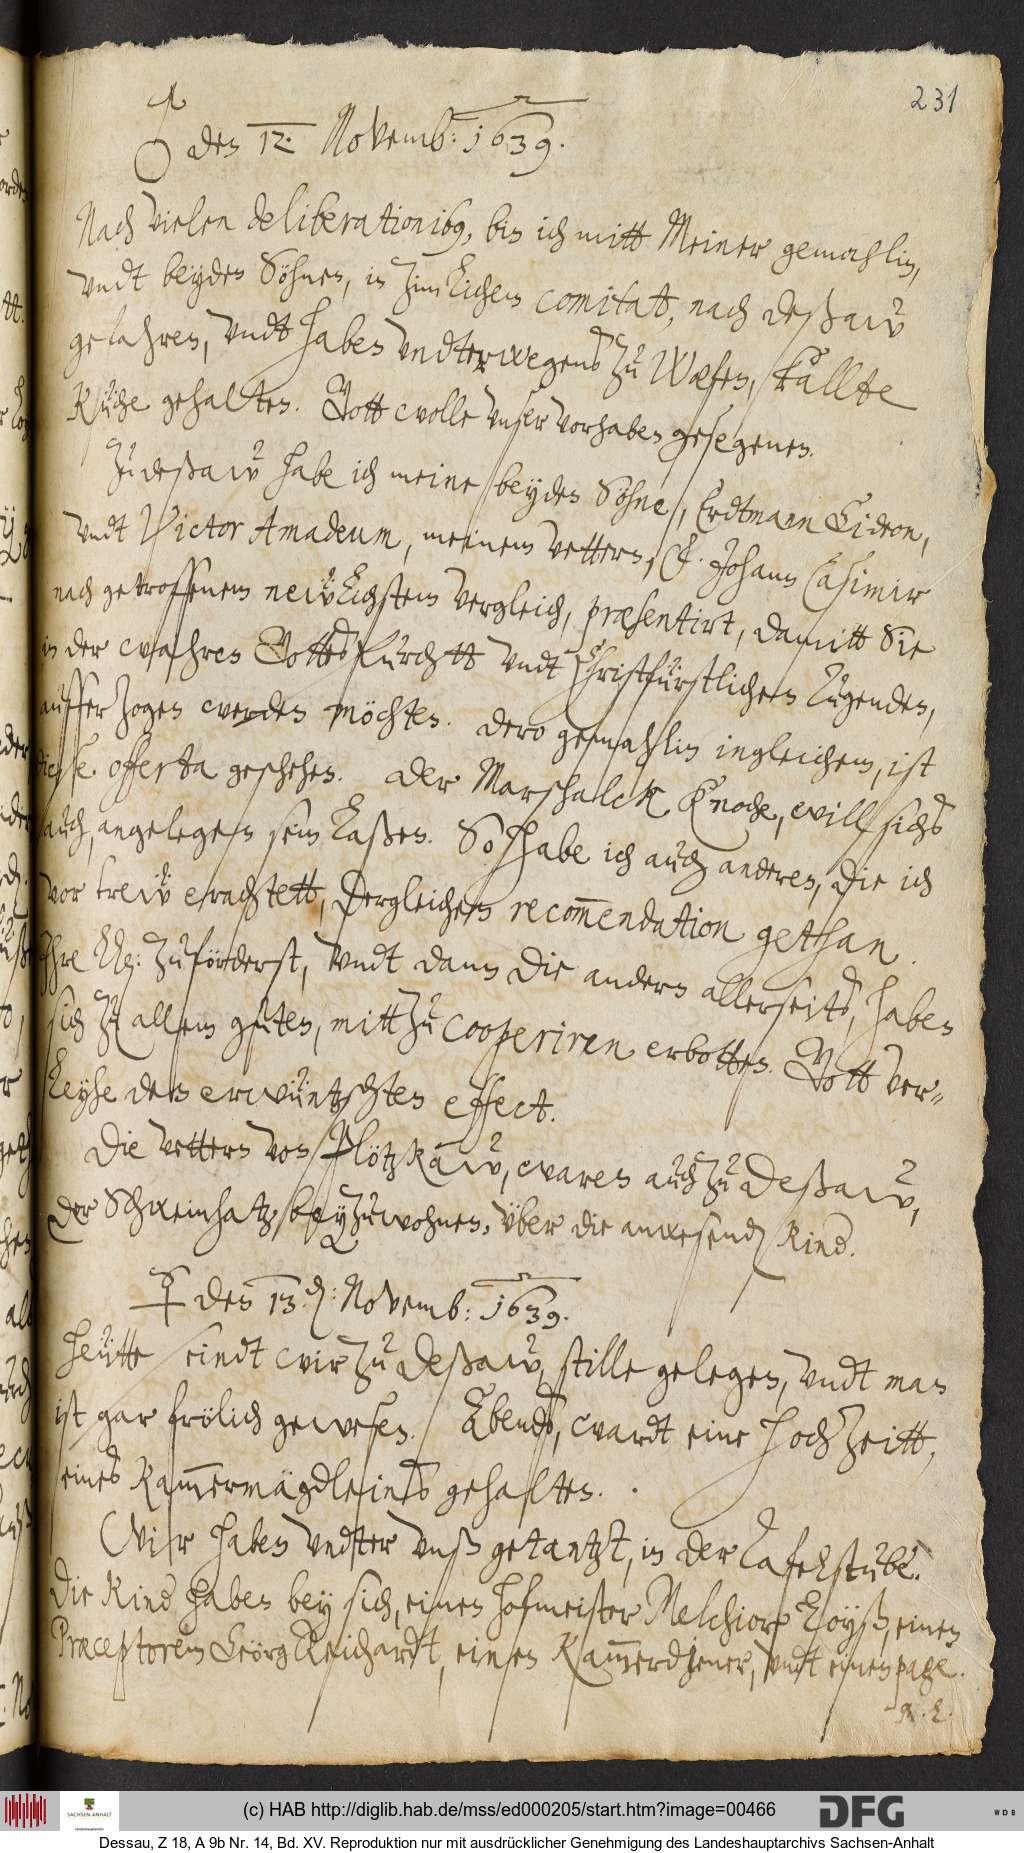 231
♂ den 12. Novemb: 1639.
Nach vielen deliberationibus, bin ich mitt Meiner gemahlin,
vndt beyden Söhnen, in zimlichem comitatt, nach Deßaw
gefahren, vndt haben vndterwegens zu Wæsen, kallte
Küche gehalten. Gott wolle vnser vorhaben gesegenen.
Zu Deßaw habe ich meine beyden Söhne, Erdtmann Gideon,
vndt Victor Amadeum, meinem vettern, F. Johann Casimir
nach getroffenem newlichstem vergleich, præsentirt, damitt Sie
in der wahren Gottesfurchtt vndt Christfürstlichen Tugenden,
aufferzogen werden möchten. Dero gemahlin ingleichem, ist
diese offerta geschehen. Der Marschalck Knoche, will sichs
auch, angelegen sein laßen. So habe ich auch anderen, die ich
vor trew erachtett, dergleichen recom̃endation gethan.
Ihre Ld: zuförderst, vndt dann die andern allerseits, haben
sich zu allem guten, mitt zu cooperiren erbotten. Gott ver-
leyhe den erwüntzschten effect.
Die vettern von Plötzkaw, waren auch zu Deßaw,
der Schweinhatz, beyzuwohnen, über die anwesende Kind.
☿ den 13. d: Novemb: 1639.
Heütte seindt wir zu Deßaw, stille gelegen, vndt man
ist gar frölich gewesen. Abends, wardt eine Hochzeitt,
eines Kam̃ermägdleins gehalten.
Wir haben vndter vnß getantzt, in der Tafelstube.
Die Kind haben bey sich, einen Hofmeister Melchior Loyß, einen
Præceptorem Geörg Reichardt, einen Kam̃erdiener, vndt einen page.
(c) HAB http://diglib.hab.de/mss/ed000205/start.htm?image=00466
SACHSEN-ANHALT
DFG
WDB
Dessau, Z 18, A 9b Nr. 14, Bd. XV. Reproduktion nur mit ausdrücklicher Genehmigung des Landeshauptarchivs Sachsen-Anhalt